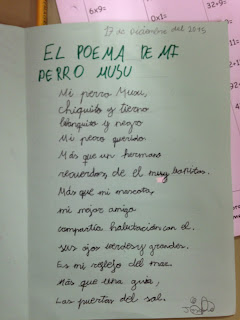 6x9=
0x1=
32÷
9÷
17 de Diciembre del 2015
EL POEMA DE MI
PERRO MUSU
Mi perro Musu,
chiquito y tierno
blanquito y negro
Mi perro querido.
Más que un hermano
recuerdos, de él muy bonitos.
Más que mi mascota,
mi mejor amigo
compartía habitación con el.
sus ojos verdes y grandes.
Es mi reflejo del mar.
Más que una guía,
Las puertas del sol.